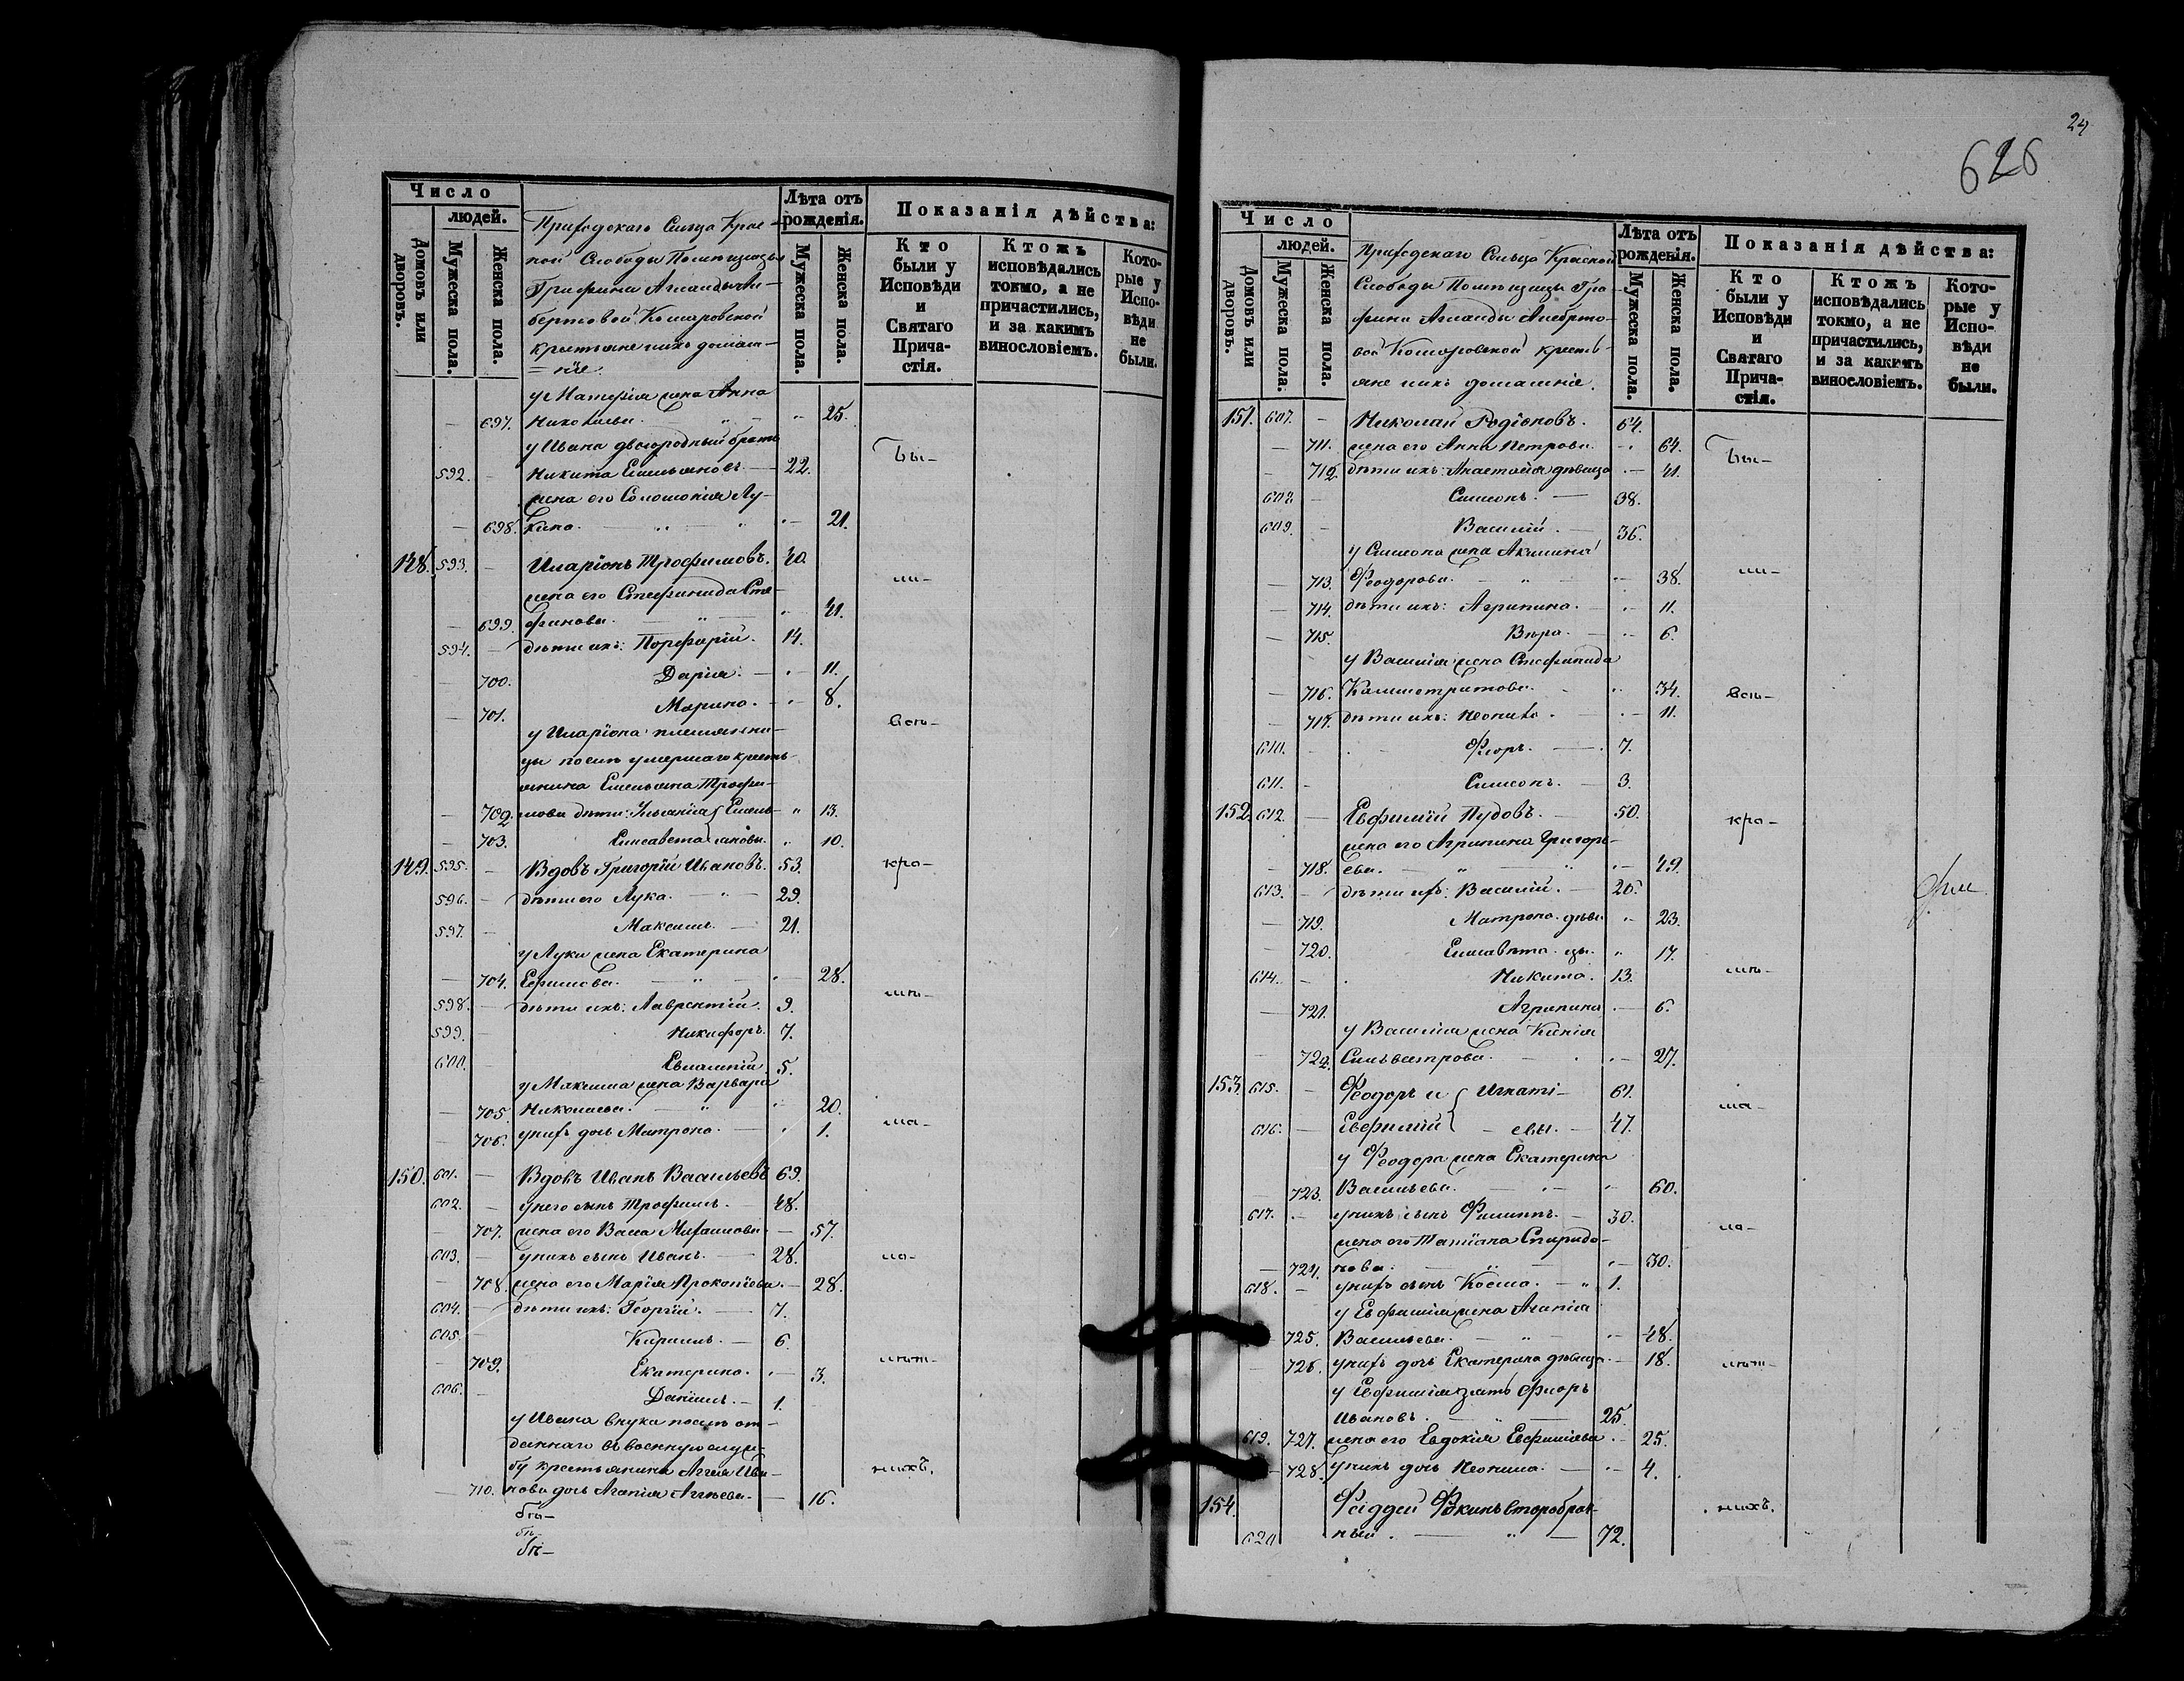 Число
людей.
Домовъ или дворовъ.
Мужеска пола.
Женска пола.
Приходскаго Сельца Крас-
ной Слободы Помѣщицы
Графини
Комаровской
крестьяне и ихъ домаш-
=ніе.
Лѣта отъ рожденія.
Мужеска пола.
Женска пола.
Показанія дѣйства:
Кто были у Исповѣди и Святаго Прича-стія.
Ктожъ исповѣдались токмо, а не причастились, и за какимъ винословіемъ.
Кото-рые у Испо-вѣди не были.
жена Анна
697. Николаева. 25.
у Ивана двоюродный братъ
592. Никита Емельяновъ. 22.
жена его Соломонія Лу-
698. кина. 21.
148. 593. Иларіонъ Трофимовъ. 40.
жена его Стефанида Сте-
699. фанова. 41.
594. дѣти ихъ: Порфирій. 14.
700. Дарія. 11.
701. Марина. 8.
у Иларіона племянни-
цы послѣ умершаго кресть-
янина Емельяна Трофи-
702. мова дѣти: Емель- 13.
703. Елисавета яновы. 10.
149. 595. Вдовъ Григорій Ивановъ. 53.
596. дѣти его Лука. 29.
597. Максимъ. 21.
у Луки жена Екатерина
704. Ефимова. 28.
598. дѣти ихъ: Лаврентій. 9.
599. Никифоръ. 7.
600. Евлампій. 5.
у Максима жена Варвара
705. Николаева. 20.
706. у нихъ дочь Матрона. 1.
150. 601. Вдовъ Иванъ Васильевъ 69.
602. у него сынъ Трофимъ. 48.
707. жена его Васса 57.
603. у нихъ сынъ Иванъ. 28.
708. жена его Марія Прокопіева. 28.
604. дѣти ихъ: Георгій. 7.
605. Кирилъ. 6.
709. Екатерина. 3.
606. Даніилъ. 1.
у Ивана внука послѣ от-
даннаго въ военную служ-
бу крестьянина Аггея Ива-
710. нова дочь Агапія Аггѣева. 16.
Бы-
ли-
всѣ-
кро-
мѣ-
ма-
ло-
лѣт-
нихъ.
24
626
Число
людей.
Домовъ или дворовъ.
Мужеска пола.
Женска пола.
Приходскаго Сельца Красной
Слободы Помѣщицы Гра-
фини
Комаровской кресть-
яне и ихъ домашніе.
Лѣта отъ рожденія.
Мужеска пола.
Женска пола.
Показанія дѣйства:
Кто были у Исповѣди и Святаго Прича-стія.
Ктожъ исповѣдались токмо, а не причастились, и за какимъ винословіемъ.
Кото-рые у Испо-вѣди не были.
151. 607. Николай Родіоновъ. 64.
711. жена его Анна Петрова. 64.
712. дѣти ихъ: Анастасія дѣвица 41.
608. Симеонъ. 38.
609. Василій. 36.
у Симеона жена Акилина
713. Феодорова. 38.
714. дѣти ихъ: Агрипина. 11.
715. Вѣра. 6.
у Василія жена Стефанида
716. Калистратова. 34.
717. дѣти ихъ: Неонила. 11.
610. Флоръ. 7.
611. Симеонъ. 3.
152. 612. Евфимій Пудовъ. 50.
жена его Агрипина Григорь-
718. ева. 49.
613. дѣти ихъ: Василій. 26.
719. Матрона дѣви- 23.
720. Елисавѣта цы. 17.
614. Никита. 13.
721. Агрипина 6.
у Василія жена Ксенія
722. Сильвестрова. 27.
153. 615. Феодоръ и Игнаті- 61.
616. Евфимій евы. 47.
у Феодора жена Екатерина
723. Васильева. 60.
617. у нихъ сынъ Филиппъ. 30.
жена его Татіана Спиридо-
724. нова. 30.
618. у нихъ сынъ Косма. 1.
у Евфимія жена Агапія
725. Васильева. 48.
726. у нихъ дочь Екатерина дѣвица. 18.
у Евфимія зять Флоръ
Ивановъ. 25.
619. 727. жена его Евдокія Евфиміева 25.
728. у нихъ дочь Неонила. 4.
154. Фаддей второбрач-
620 ный. 72.
Бы-
ли-
всѣ-
кро-
мѣ-
ма-
ло-
лѣт-
нихъ.